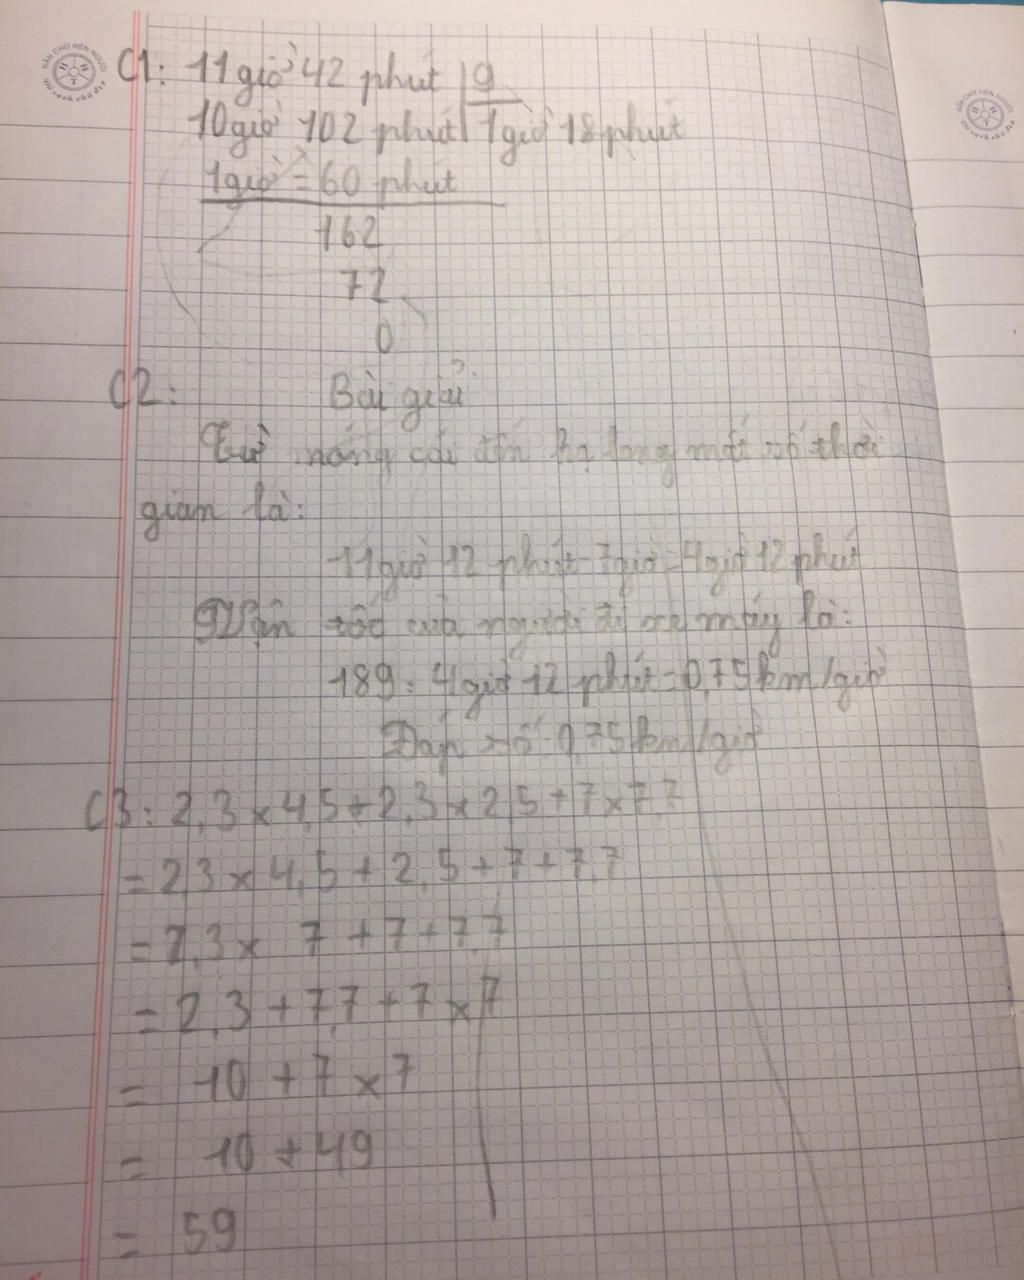 C1: 11 giờ 42 phút | 9
10 giờ 102 phút | 1 giờ 18 phút
1 giờ = 60 phút
162
72
0
C2: Bài giải
Từ móng cái đến hạ long mất số thời
gian là:
11 giờ 12 phút - 7 giờ = 4 giờ 12 phút
Vận tốc của người đi xe máy là:
189 : 4 giờ 12 phút = 0,75 km/giờ
Đáp số 0,75 km/giờ
C3: 2,3 x 4,5 + 2,3 x 2,5 + 7 x 7,7
= 2,3 x 4,5 + 2,5 + 7 + 7,7
= 2,3 x 7 + 7 + 7,7
= 2,3 + 7,7 + 7 x 7
= 10 + 7 x 7
= 10 + 49
= 59